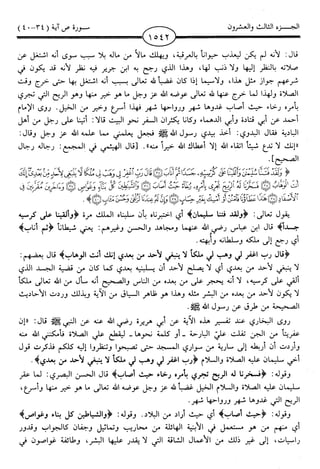 الجزء الثالث والعشرون
١٥٤٢
سورة ص آية (٣٤-٤٠)
قال: لأنه لم يكن ليعذب حيواناً بالعرقبة، ويهلك مالاً من ماله بلا سبب سوى أنه اشتغل عن
صلاته بالنظر إليها ولا ذنب لها، وهذا الذي رجح به ابن جرير فيه نظر لأنه قد يكون في
شرعهم جواز مثل هذا، ولاسيما إذا كان غضباً لله تعالى بسبب أنه اشتغل بها حتى خرج وقت
الصلاة ولهذا لما خرج عنها لله تعالى عوضه الله عز وجل ما هو خير منها وهو الريح التي تجري
بأمره رخاء حيث أصاب غدوها شهر ورواحها شهر فهذا أسرع وخير من الخيل. روى الإمام
أحمد عن أبي قتادة وأبي الدهماء وكانا يكثران السفر نحو البيت قالا: أتينا على رجل من أهل
البادية فقال البدوي: أخذ بيدي رسول الله ﷺ فجعل يعلمني مما علمه الله عز وجل وقال:
«إنك لا تدع شيئاً اتقاء الله إلا أعطاك الله خيراً منه». [قال الهيثمي في المجمع: رجاله رجال
الصحيح].
﴿ وَلَقَدْ فَتَنَّا سُلَيْمَانَ وَأَلْقَيْنَا عَلَى كُرْسِيِّهِ جَسَدًا ثُمَّ أَنَابَ
يقول تعالى: ﴿ولقد فتنا سليمان﴾ أي اختبرناه بأن سلبناه الملك مرة ﴿وألقينا على كرسيه
جسداً﴾ قال ابن عباس رضي الله عنهما ومجاهد والحسن وغيرهم: يعني شيطاناً ﴿ثم أناب﴾
أي رجع إلى ملكه وسلطانه وأبهته.
﴿قال رب اغفر لي وهب لي ملكاً لا ينبغي لأحد من بعدي إنك أنت الوهاب﴾ قال بعضهم:
لا ينبغي لأحد من بعدي أي لا يصلح لأحد أن يسلبنيه بعدي كما كان من قضية الجسد الذي
ألقي على كرسيه، لا أنه يحجر على من بعده من الناس والصحيح أنه سأل من الله تعالى ملكاً
لا يكون لأحد من بعده من البشر مثله وهذا هو ظاهر السياق من الآية وبذلك وردت الأحاديث
الصحيحة من طرق عن رسول الله ﷺ.
روى البخاري عند تفسير هذه الآية عن أبي هريرة رضي الله عنه عن النبي ﷺ قال: «إن
عفريتاً من الجن تفلت علي البارحة - أو كلمة نحوها - ليقطع علي الصلاة فأمكنني الله منه
وأردت أن أربطه إلى سارية من سواري المسجد حتى تصبحوا وتنظروا إليه كلكم فذكرت قول
أخي سليمان عليه الصلاة والسلام ﴿رب اغفر لي وهب لي ملكاً لا ينبغي لأحد من بعدي﴾.
وقوله: ﴿فسخرنا له الريح تجري بأمره رخاء حيث أصاب﴾ قال الحسن البصري: لما عقر
سليمان عليه الصلاة والسلام الخيل غضباً لله عز وجل عوضه الله تعالى ما هو خير منها وأسرع،
الريح التي غدوها شهر ورواحها شهر.
وقوله: ﴿حيث أصاب﴾ أي حيث أراد من البلاد. وقوله: ﴿والشياطين كل بناء وغواص﴾
أي منهم من هو مستعمل في الأبنية الهائلة من محاريب وتماثيل وجفان كالجواب وقدور
راسيات، إلى غير ذلك من الأعمال الشاقة التي لا يقدر عليها البشر، وطائفة غواصون في